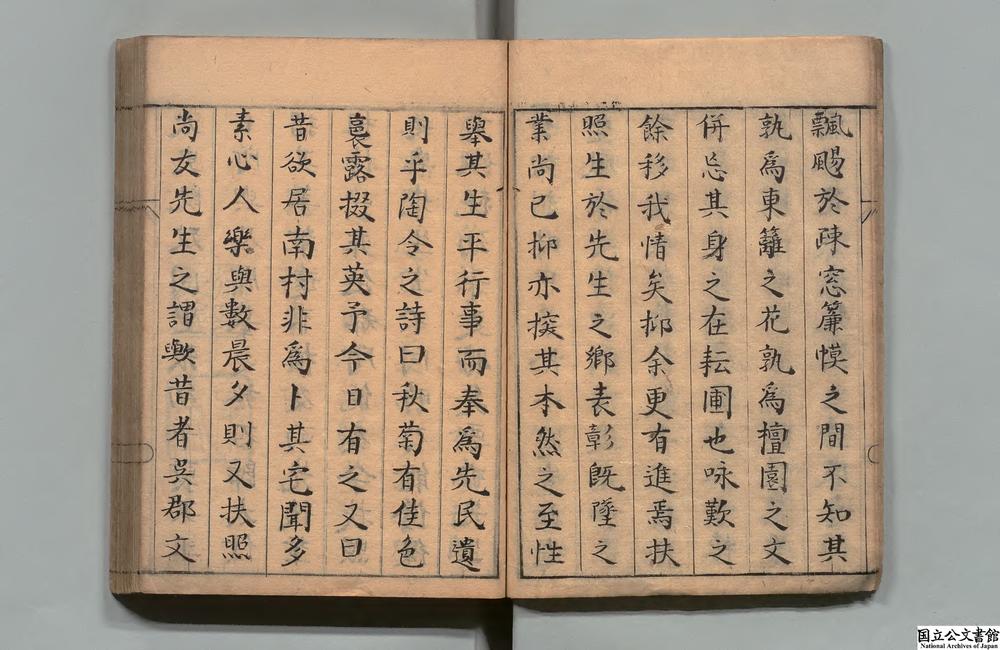 飄颺於疎窓簾幙之間不知其
孰爲東籬之花孰爲檀園之文
併忘其身之在耘圃也咏歎之
餘移我情矣抑余更有進焉扶
照生於先生之鄉表彰旣墜之
業尚已抑亦揆其本然之至性
舉其生平行事而奉爲先民遺
則乎陶令之詩曰秋菊有佳色
裛露掇其英予今日有之又曰
昔欲居南村非爲卜其宅聞多
素心人樂與數晨夕則又扶照
尚友先生之謂歟昔者吳郡文
国立公文書館
National Archives of Japan